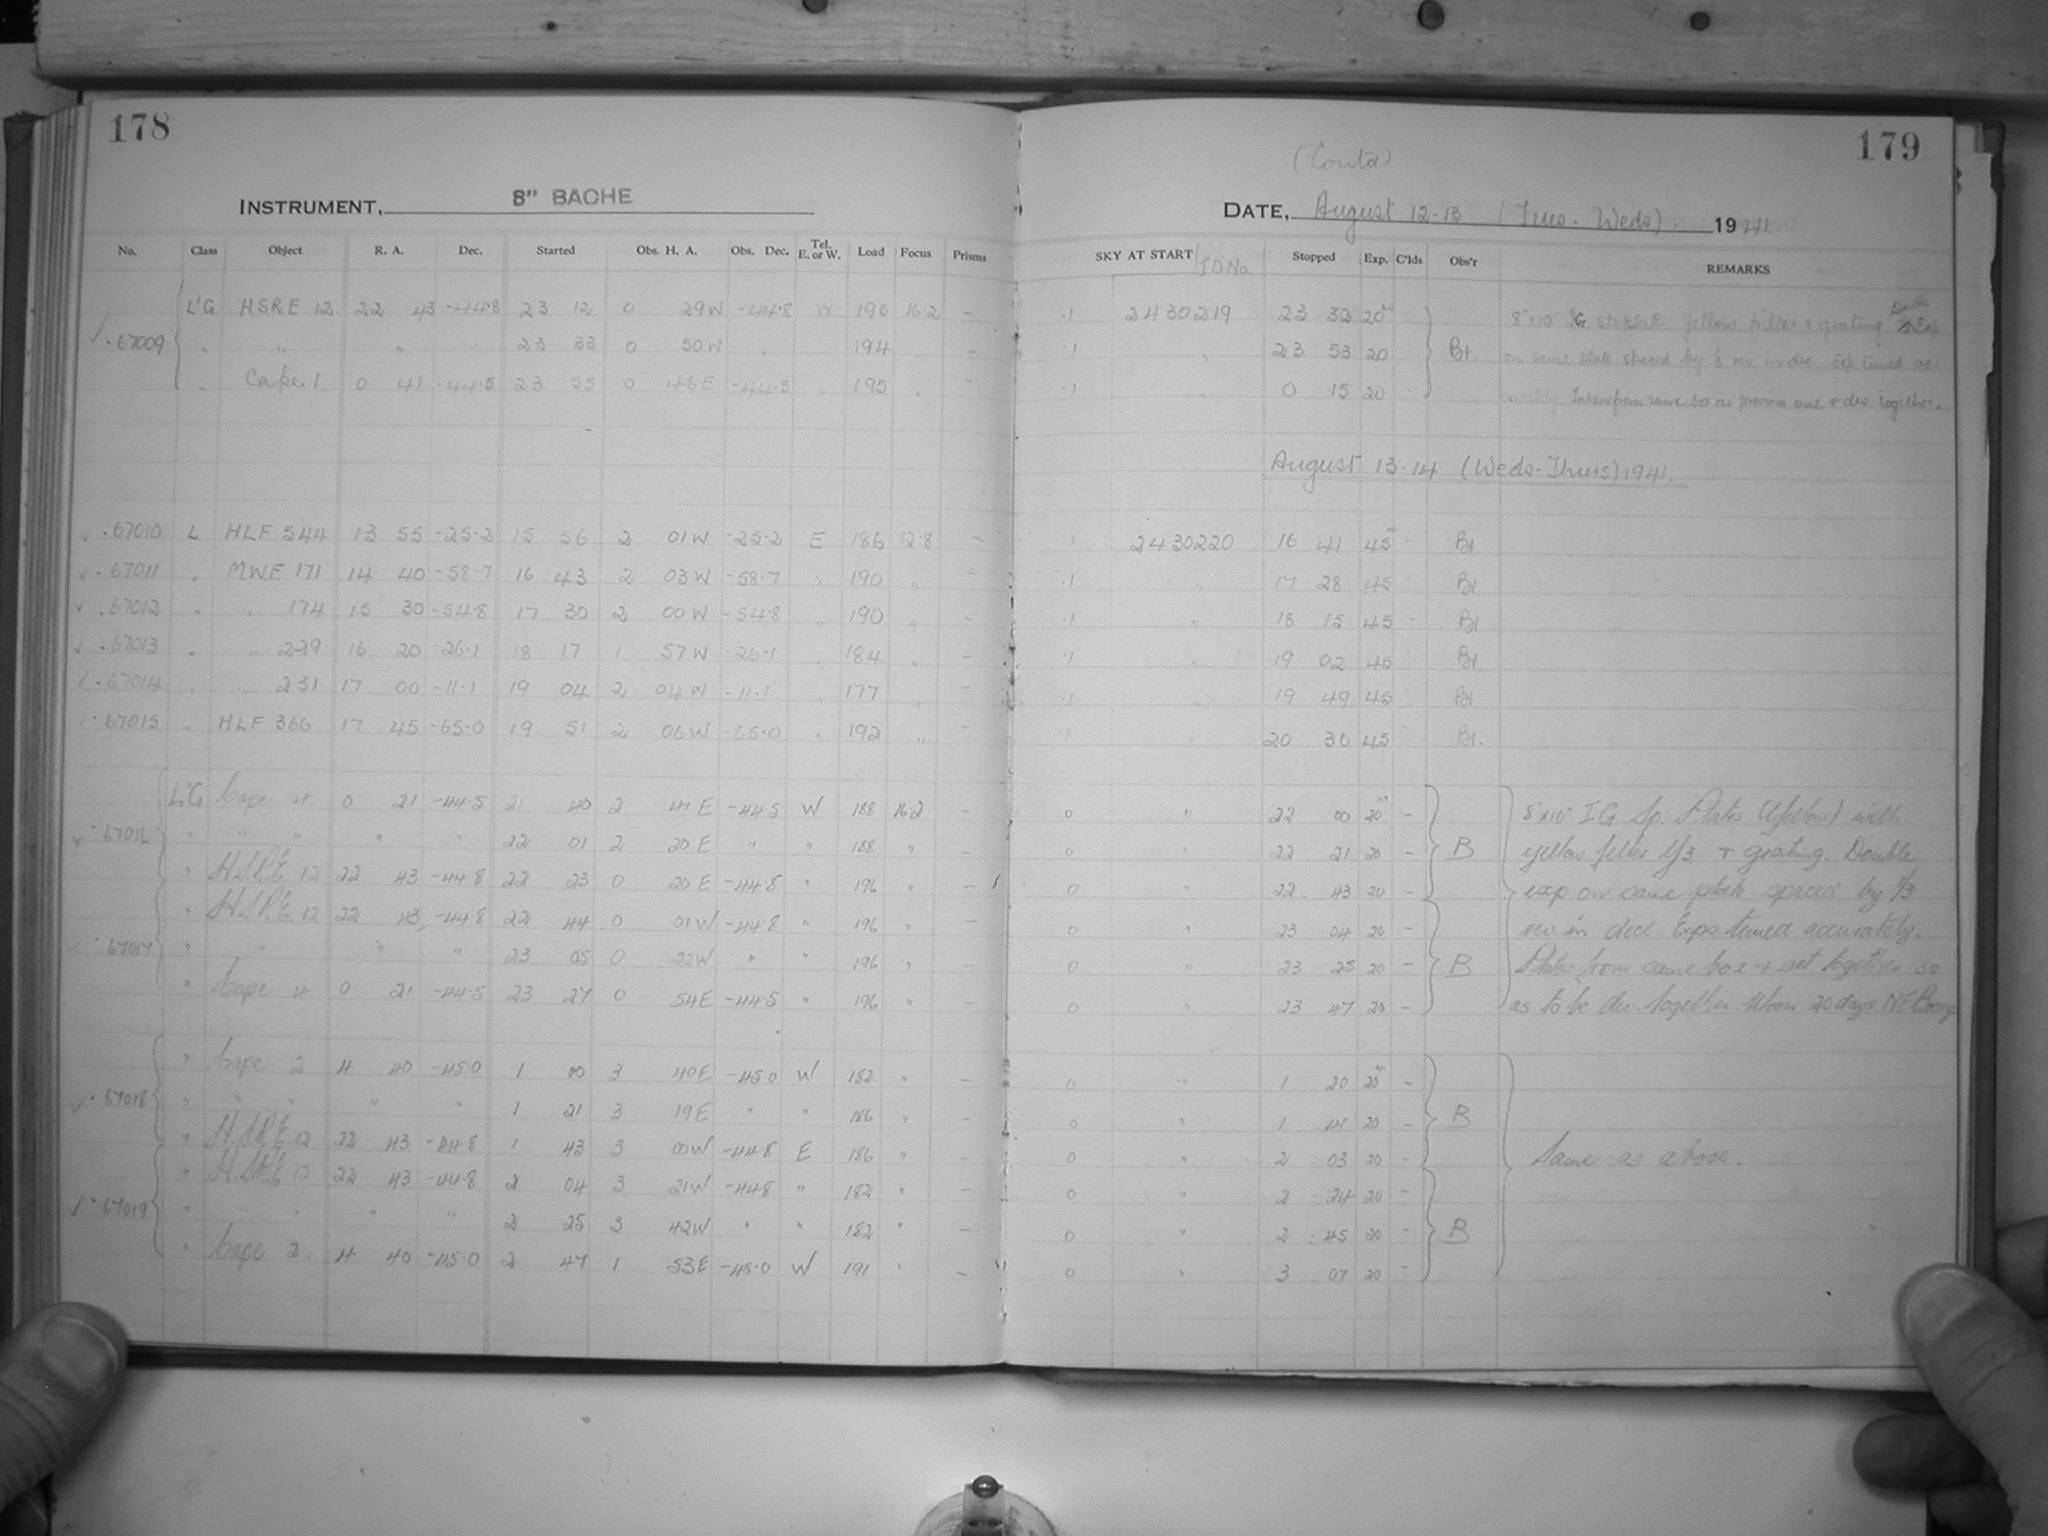 178
INSTRUMENT, 8" BACHE
No. Class Object R. A. Dec. Started Obs. H. A. Obs. Dec. Tel. E. or W. Load Focus Prisms
L'G HSRE 12 22 43 -44.8 23 12 0 29W -44.8 W 196 16.2 –
✓ .67009 " " " " 23 33 0 50W " " 194 " –
" Cape 1. 0 41 -44.5 23 55 0 46E -44.5 " 195 " –
✓ .67010 L HLF 544 13 55 -25.2 15 56 2 01W -25.2 E 186 12.8 –
✓ .67011 " M.W.F. 171 14 40 -58.7 16 43 2 03W -58.7 " 190 " –
✓ .67012 " " 174 15 30 -54.8 17 30 2 00W -54.8 " 190 " –
✓ .67013 " " 229 16 20 -26.1 18 17 1 57W -26.1 " 184 " –
✓ .67014 " " 231 17 00 -11.1 19 04 2 04W -11.1 " 177 " –
✓ .67015 " HLF 366 17 45 -65.0 19 51 2 06W -65.0 " 192 " –
L'G Cape 4 0 21 -44.5 21 40 2 41E -44.5 W 188 16.2 –
✓ .67016 " " " " " 22 01 2 20E " " 188 " –
" H.S.R.E. 12 22 43 -44.8 22 23 0 20E -44.8 " 196 " –
" H.S.R.E. 12 22 43 -44.8 22 44 0 01W -44.8 " 196 " –
✓ .67017 " " " " 23 05 0 22W " " 196 " –
" Cape 4 0 21 -44.5 23 27 0 54E -44.5 " 196 " –
" Cape 2 4 40 -45.0 1 00 3 40E -45.0 W 182 " –
✓ .67018 " " " " " 1 21 3 19E " " 186 " –
" H.S.R.E. 12 22 43 -44.8 1 43 3 00W -44.8 E 186 " –
" H.S.R.E. 12 22 43 -44.8 2 04 3 21W -44.8 " 182 " –
✓ .67019 " " " " " 2 25 3 42W " " 182 " –
" Cape 2. 4 40 -45.0 2 47 1 53E -45.0 W 191 " –
179
(Contd)
DATE, August 12-13 (Tues-Weds). 1941.
SKY AT START JD No. Stopped Exp. C'lds Obs'r REMARKS
.1 2430219 23 32 20m Br. 8"x10" IG yellow filter + grating. Double Exp
.1 " 23 53 20 on same plate spaced by rev in dec. Exp timed ac-
.1 " 0 15 20 – curately Taken from same box as previous one + dev together.
August 13-14 (Weds-Thurs) 1941.
.1 2430220 16 41 45m – Br
.1 " 17 28 45 Br
.1 " 18 15 45 Br
.1 " 19 02 45 Br
.1 " 19 49 45 Br
.1 " 20 36 45 Br.
0 " 22 00 20m – 8"x10" I.G Sp. Plates (Yellow) with
0 " 22 21 20 – B yellow filter 1/3 + grating. Double
0 " 22 43 20 – exp on same plate spaced by 1/3
0 " 23 04 20 – rev in decl Expo timed accurately.
0 " 23 25 20 – B Plates from same box + set together so
0 " 23 47 20 – as to be dev. together. Moon 20 days
0 " 1 20 20m –
0 " 1 41 20 – B
0 " 2 03 20 – Same as above.
0 " 2 24 20 –
0 " 2 45 20 – B
0 " 3 07 20 –